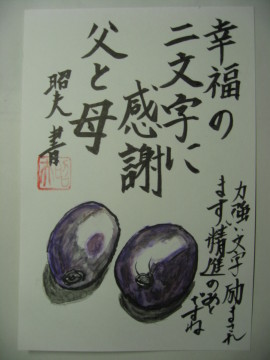 幸福の
二文字に
感謝
父と母
昭夫 書
力強い文字励まされ
ます精進のあと
ですね